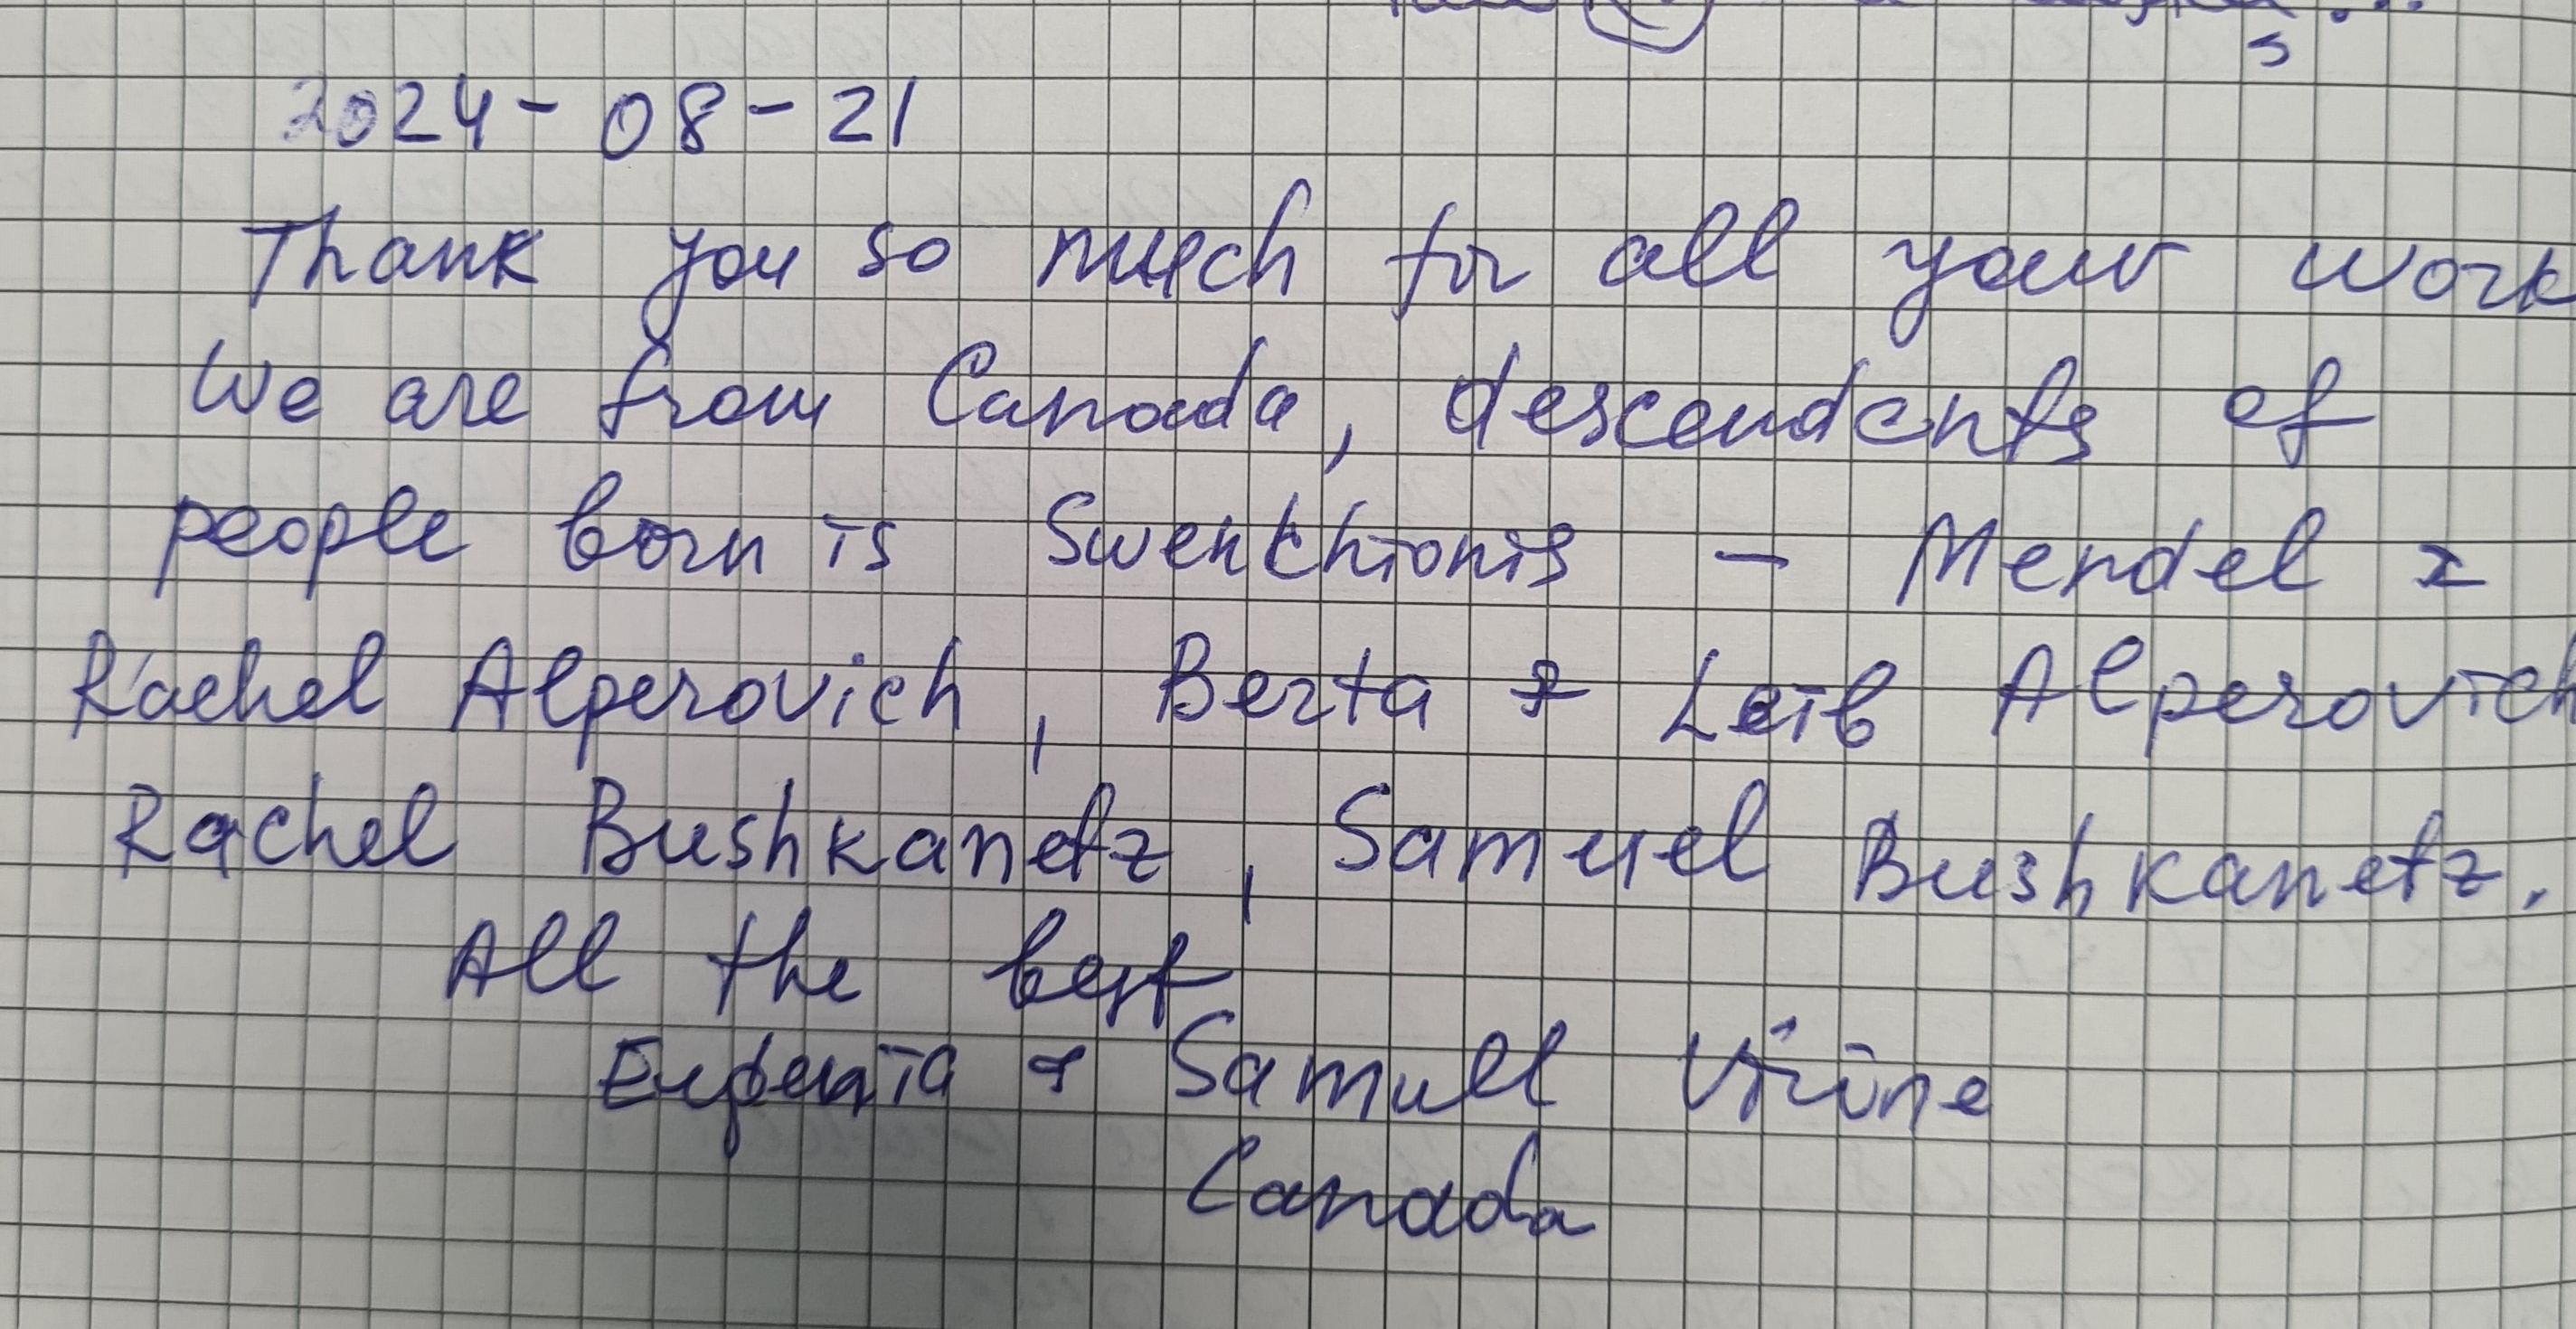 2024-08-21
Thank you so much for all your work
We are from Canada, descendents of
people born is Swenthionis - Mendel &
Rachel Alperovich, Berta & Leib Alperovich
Rachel Bushkanetz, Samuel Bushkanetz.
All the best
& Samuel
Canada